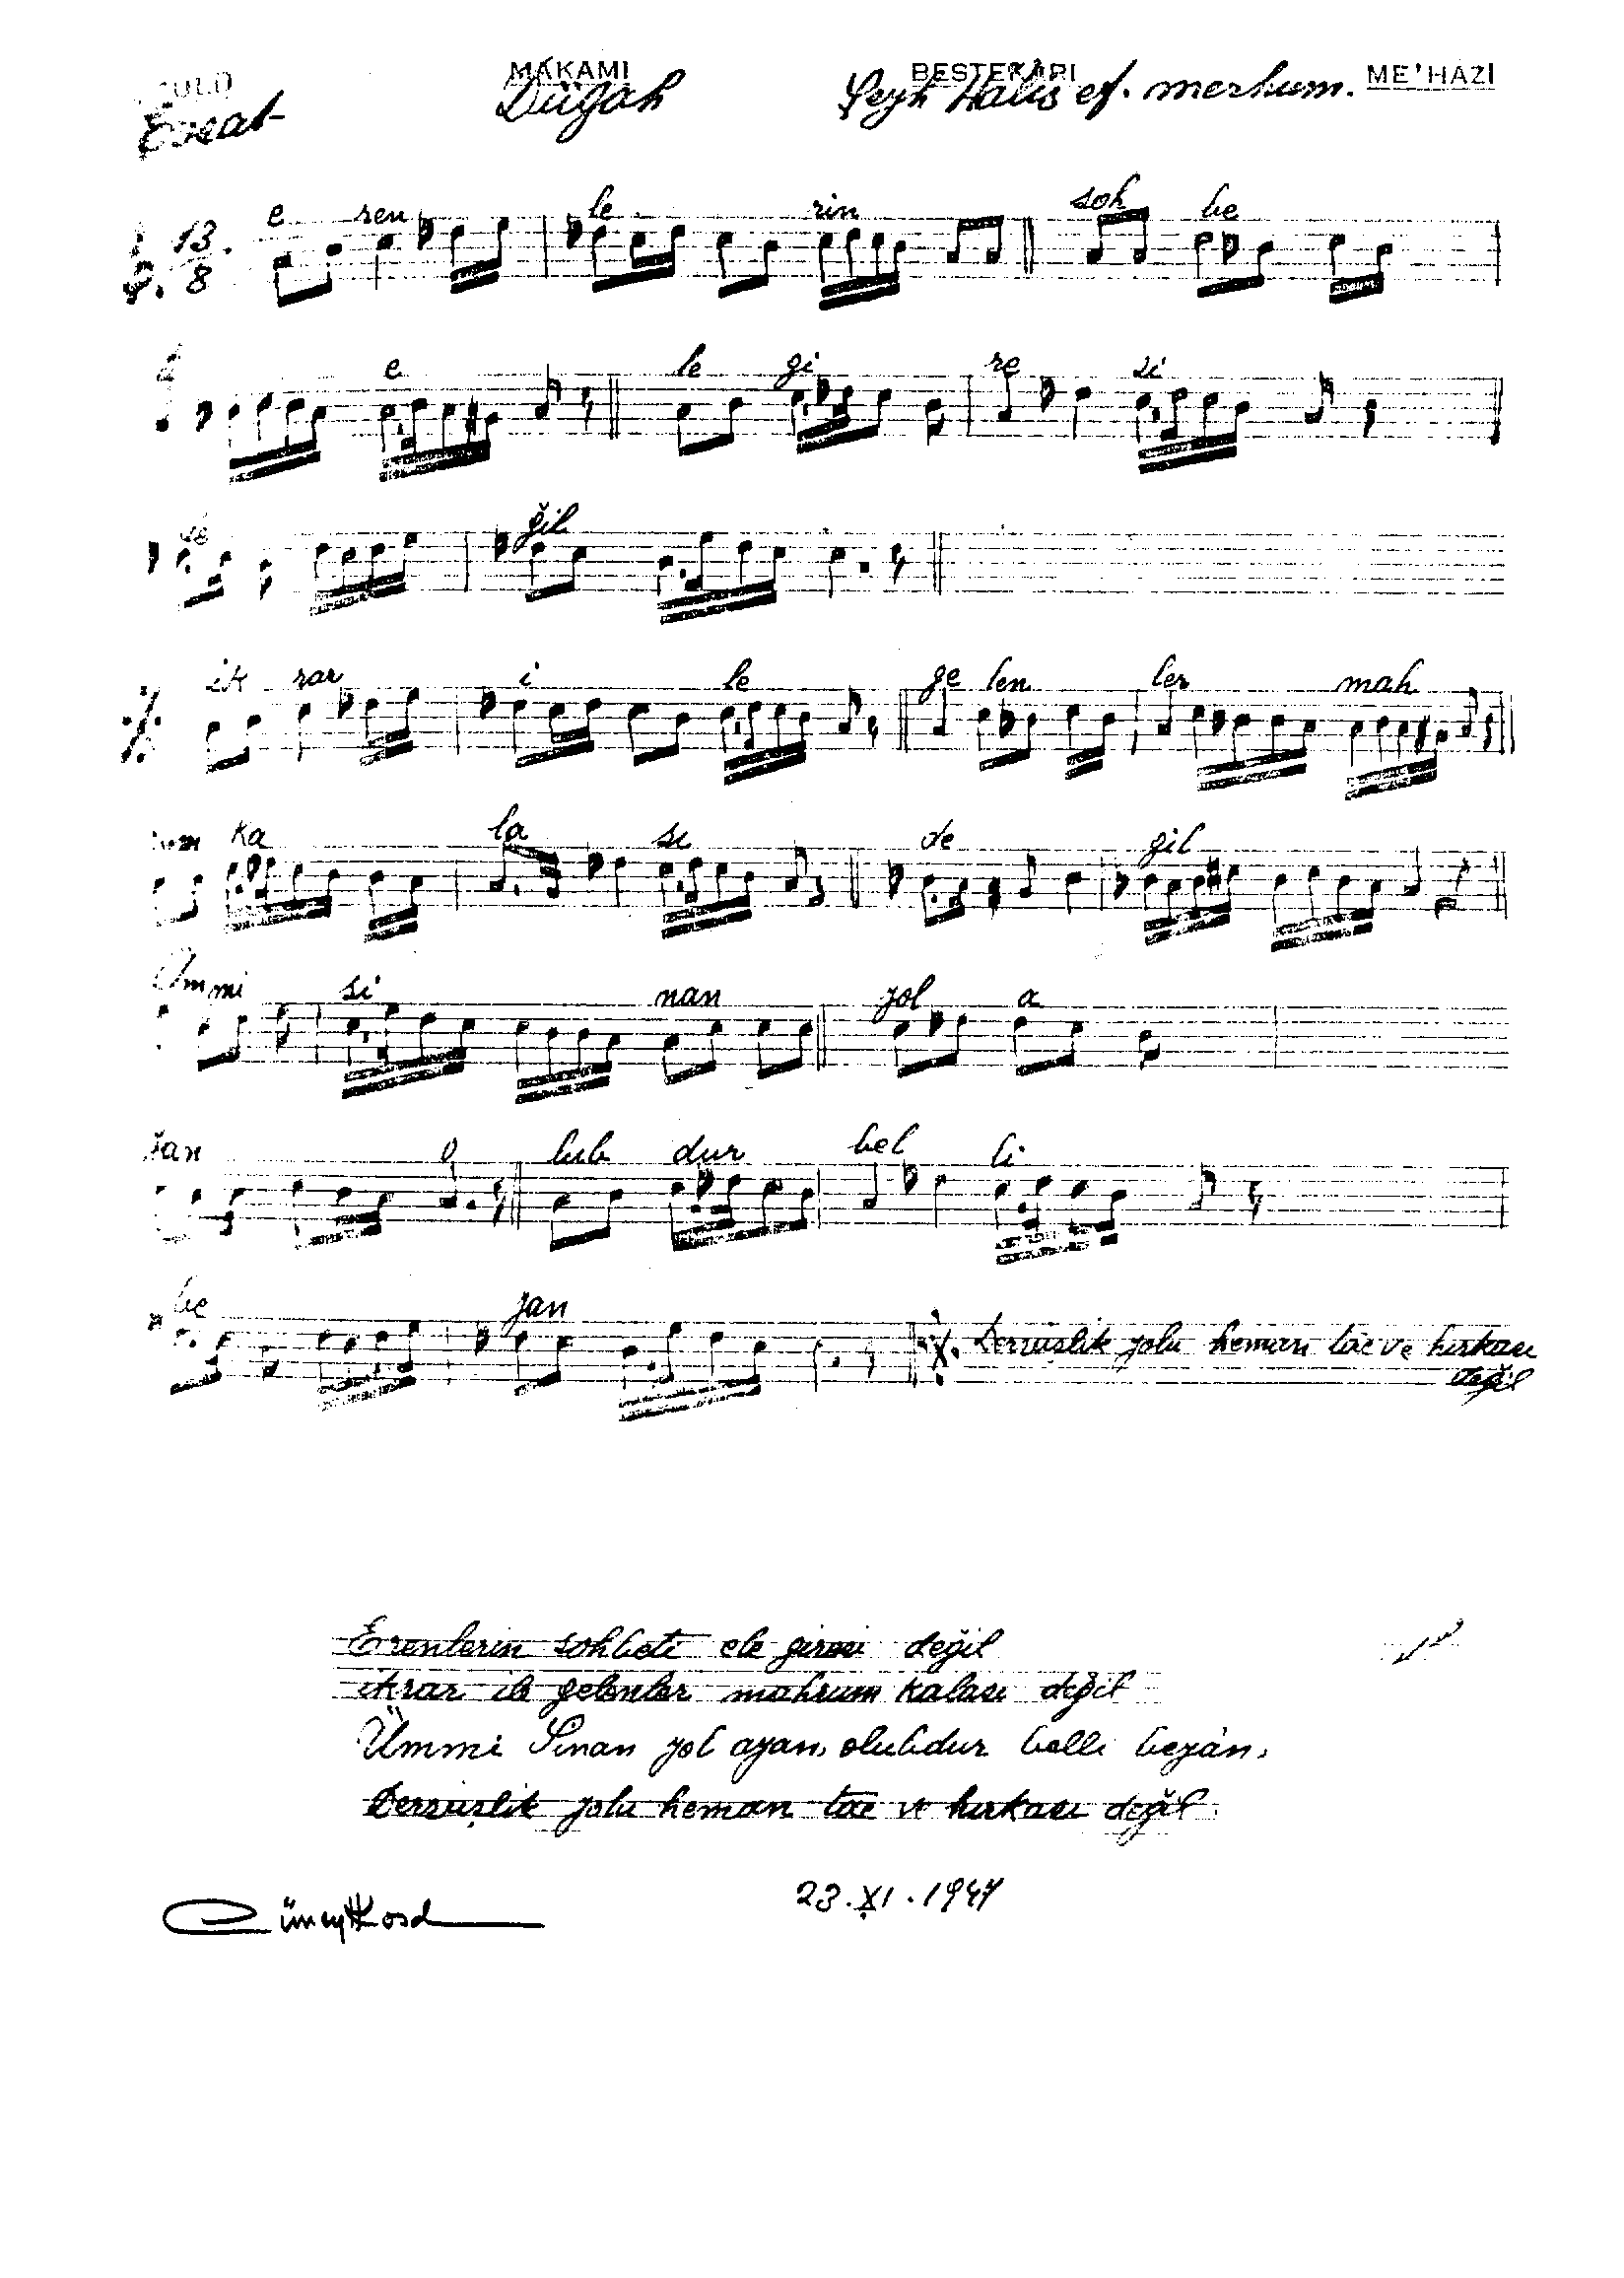 MAKAMI BESTEKÂRI ME'HAZİ
Evsat Dügâh Şeyh Halis ef. merhum.
e ren le rin soh be
13
8
e le gi re si
de ğil
ik rar i le ge len ler mah
rum ka la sı de ğil
Ümmi si nan yol a
yan o lub dur bel li
be yan Dervişlik yolu heman tac ve hırkası
değil
Erenlerin sohbeti ele giresi değil
ikrar ile gelenler mahrum kalası değil
Ümmi Sinan yol ayan, olubdur belli beyân,
Dervişlik yolu heman tac ve hırkası değil
23.XI.1947
Cüneyd Kosal